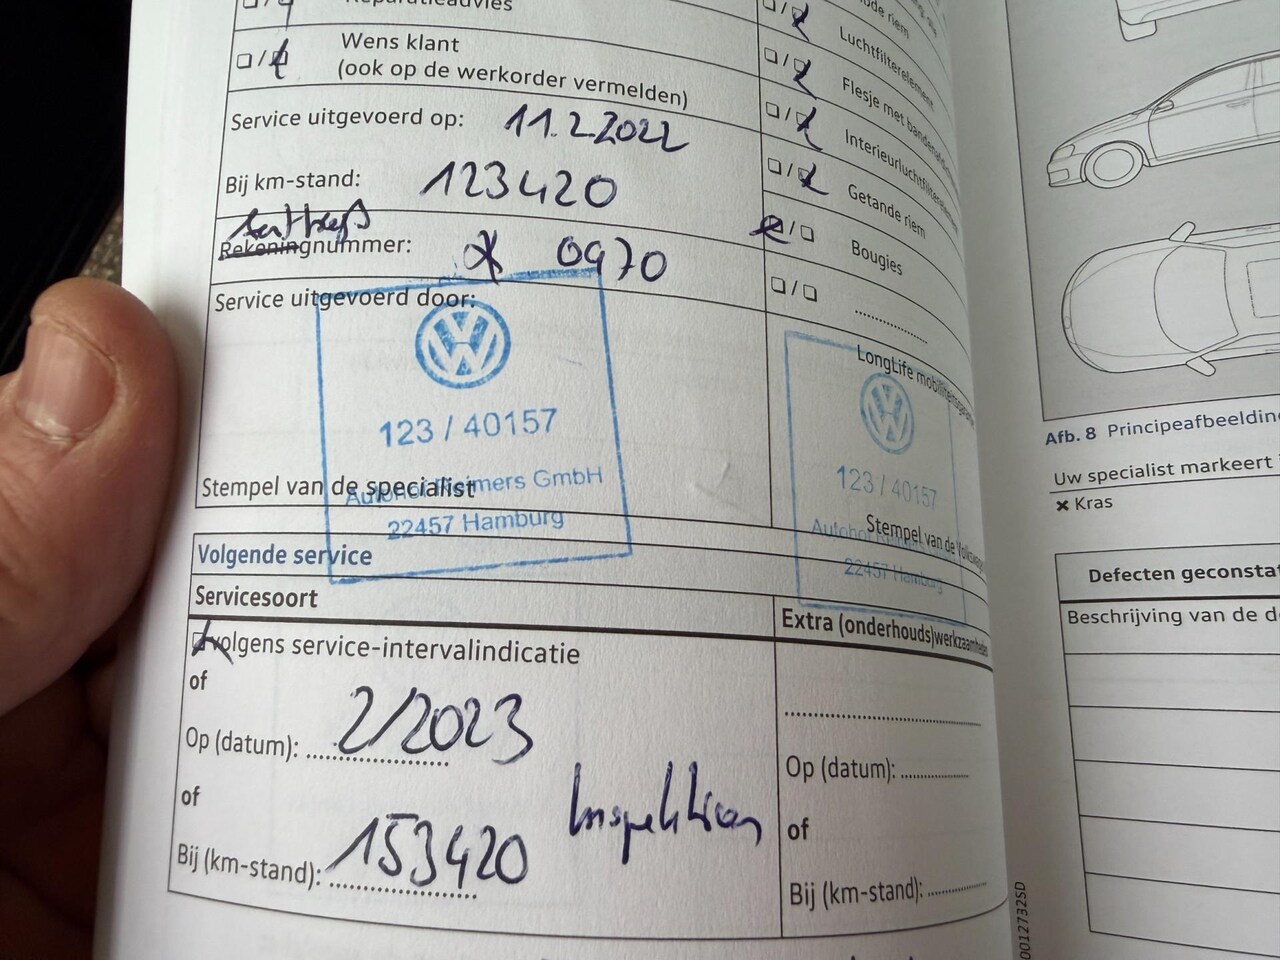 Reparatieadvies
Wens klant
(ook op de werkorder vermelden)
Service uitgevoerd op: 11.2.2022
Bij km-stand: 123420
Rekeningnummer: 0970
Service uitgevoerd door:
123 / 40157
Stempel van de specialist
GmbH
22457 Hamburg
riem
Luchtfilterelement
Flesje met
Interieurluchtfilterelement
Getande riem
Bougies
LongLife
123 / 40157
Stempel van de
22457 Hamburg
Volgende service
Servicesoort
volgens service-intervalindicatie
of
Op (datum): 2/2023
of
Bij (km-stand): 153420
Inspektion
Extra (onderhouds)werkzaamheden
Op (datum):
of
Bij (km-stand):
Afb. 8 Principeafbeelding
Uw specialist markeert
× Kras
Defecten geconsta
Beschrijving van de d